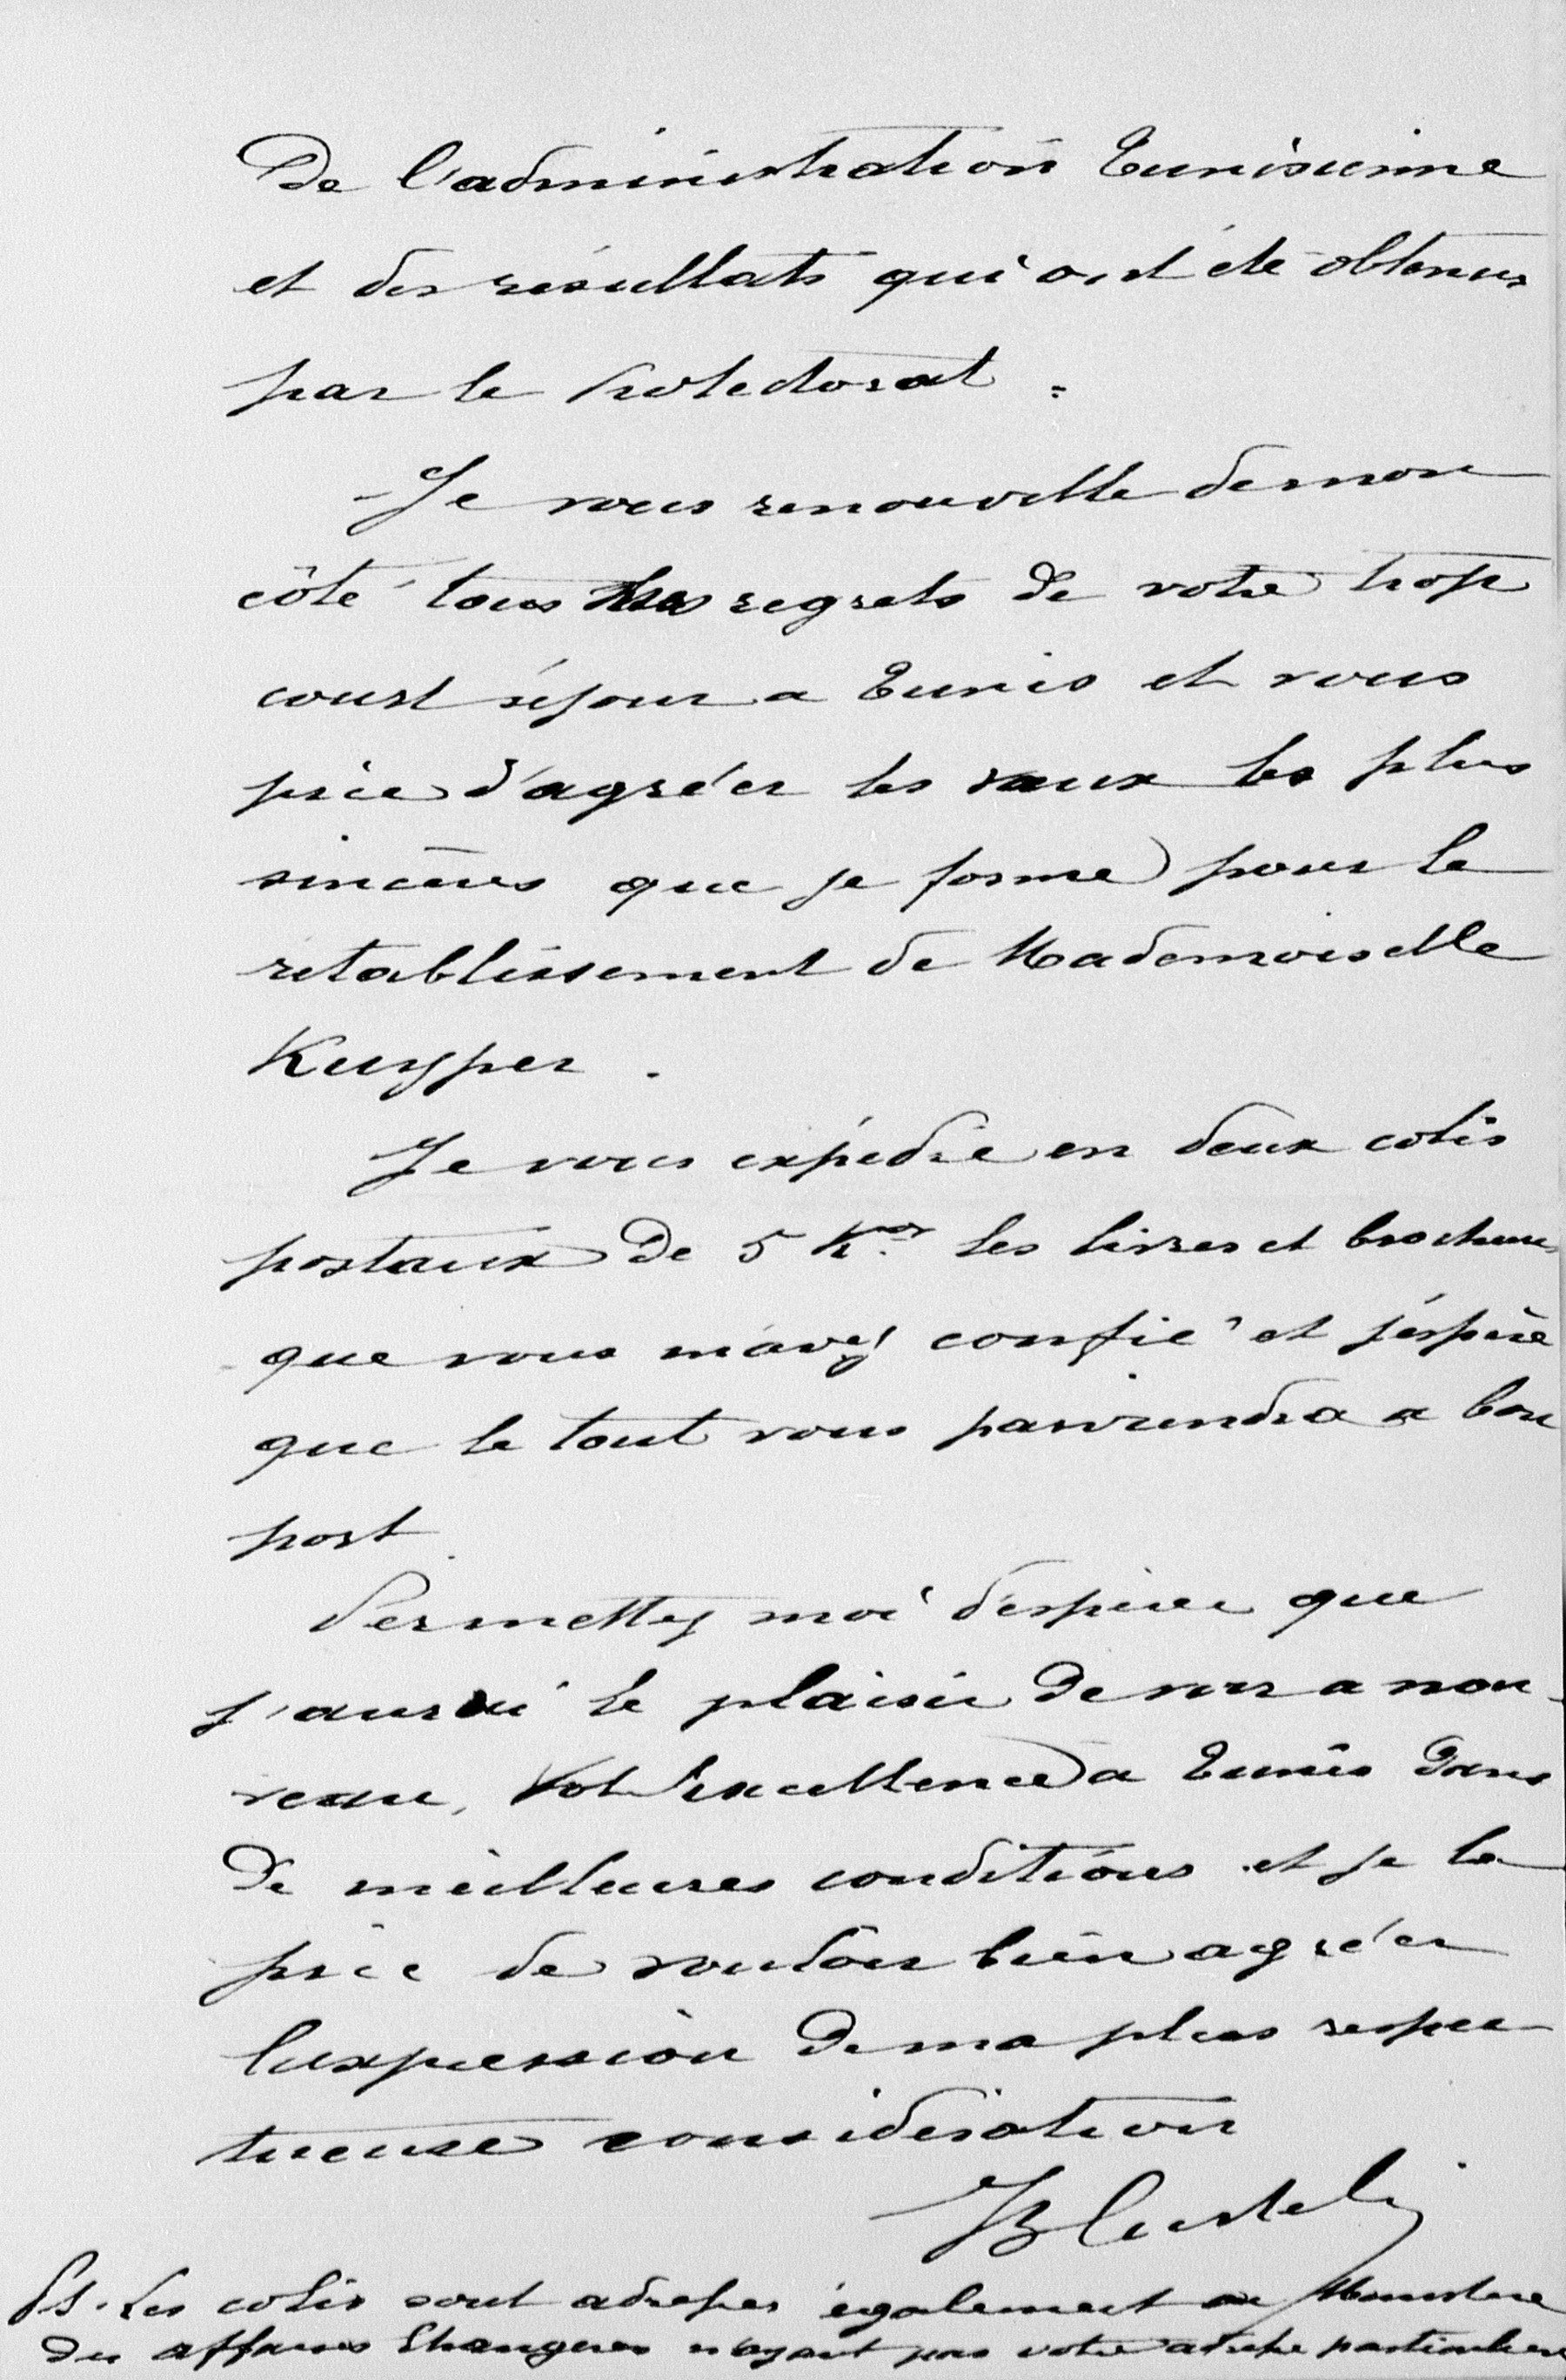 De l'administration Tunisienne
et des résultats qui ont été obtenus
par le Protectorat.
Je vous renouvelle de mon
côté tous les regrets de votre trop
court séjour a Tunis et vous
prie d'agréer les vœux les plus
sincères que je forme pour le
retablissement de Mademoiselle
Kuyper.
Je vous expédie en deux colis
postaux de 5 Kos les livres et brochures
que vous m'avez confié et j'espère
que le tout vous parviendra a bon
port
Permettez moi d'esperer que
j'aurai le plaisir de voir a nou-
veau, Votre Excellence a Tunis dans
de meilleures conditions et je la
prie de vouloir bien agréer
l'expression de ma plus respec
tueuse considération
PS. Les colis sont adressés également au Ministère
des affaires Etrangères n'ayant pas votre adresse particulière